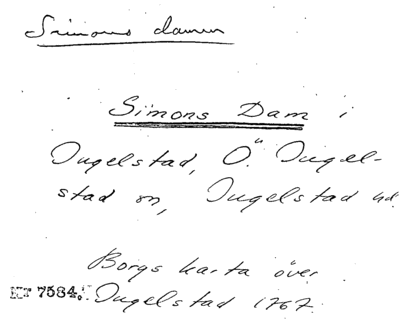 Simons damm
Simons Dam i
Ingelstad, Ö. Ingel-
stad sn, Ingelstad hd.
Borgs karta över
KT 7584. Ingelstad 1767.